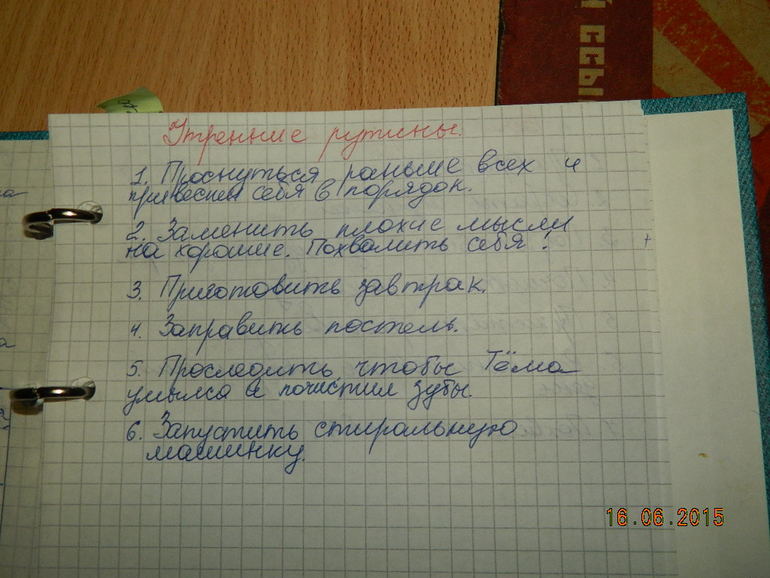 Утренние рутины.
1. Проснуться раньше всех и
привести себя в порядок.
2. Заменить плохие мысли
на хорошие. Похвалить себя!
3. Приготовить завтрак.
4. Заправить постель.
5. Проследить, чтобы Тёма
умылся и почистил зубы.
6. Запустить стиральную
машинку.
16.06.2015